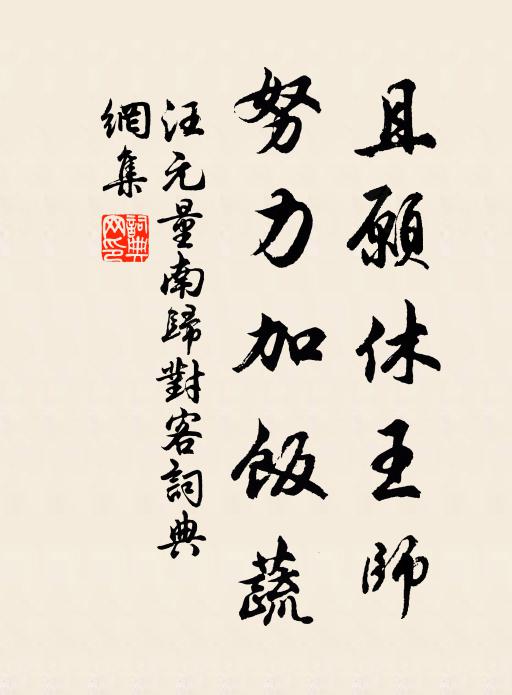 且願休王師
努力加飯蔬
汪元量南歸對客詞典
網集
詞典
网印